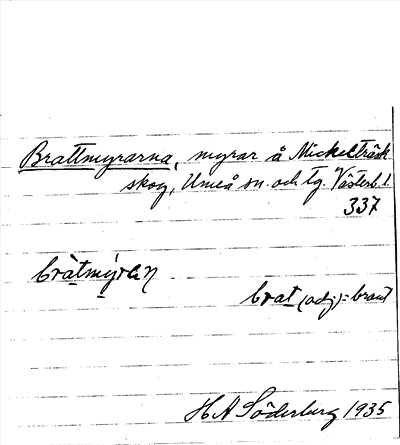 Brattmyrarna, myrar å Mickelträsk
skog, Umeå sn. och tg. Västerb. l.
337
bràtmýran
brat (adj) = brant
H A Söderberg 1935